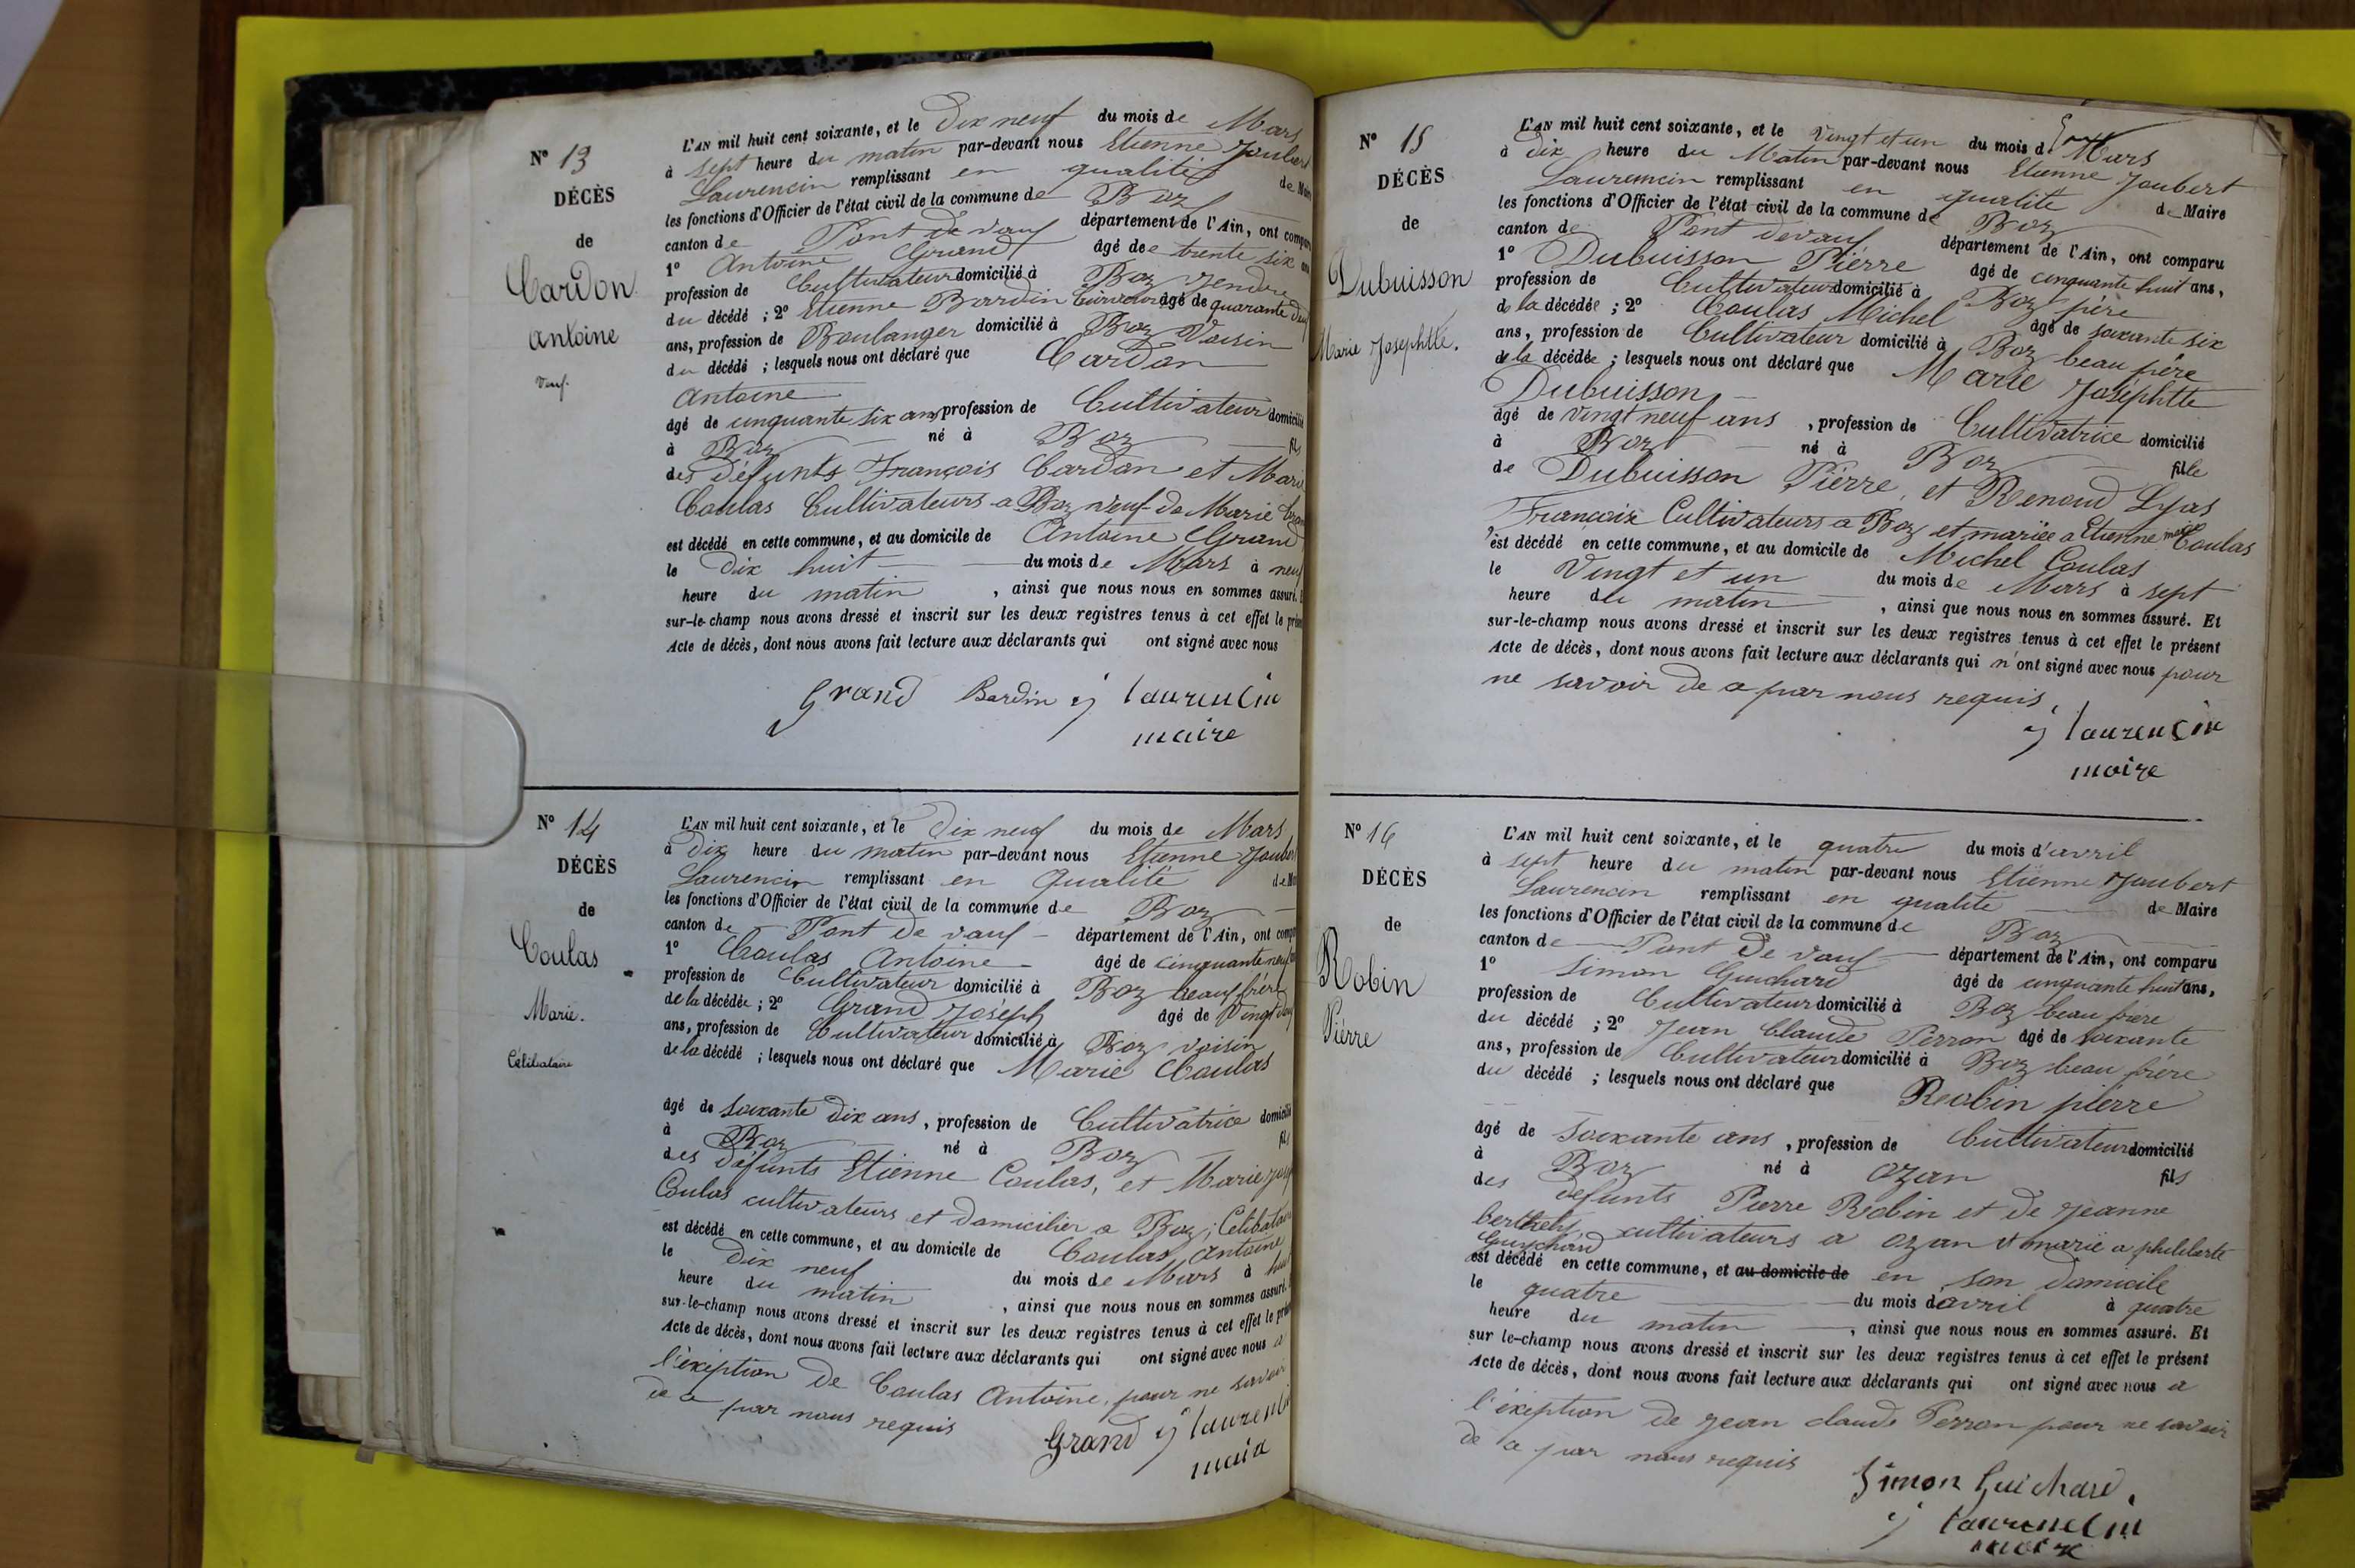 N° 13
DÉCÈS
de
Cardon
Antoine
veuf.
L'AN mil huit cent soixante, et le Dix neuf du mois de Mars
à sept heure du matin par-devant nous Etienne Joubert
Laurencin remplissant en qualité de Maire
les fonctions d'Officier de l'état civil de la commune de Boz
canton de Pont de vaux département de l'Ain, ont comparu
1° Antoine Grand âgé de trente six ans
profession de Cultivateur domicilié à Boz Gendre
du décédé ; 2° Etienne Bardin âgé de quarante deux
ans, profession de Boulanger domicilié à Boz Voisin
du décédé ; lesquels nous ont déclaré que Cardon
Antoine
âgé de cinquante six ans profession de Cultivateur domicilié
à Boz né à Boz fils
des défunts François Cardon et Marie
Coulas Cultivateurs a Boz veuf de Marie
est décédé en cette commune, et au domicile de Antoine Grand
le Dix huit du mois de Mars à neuf
heure du matin , ainsi que nous nous en sommes assuré.
sur-le-champ nous avons dressé et inscrit sur les deux registres tenus à cet effet le
Acte de décès, dont nous avons fait lecture aux déclarants qui ont signé avec nous
Grand Bardin j laurencin
maire
N° 14
DÉCÈS
de
Coulas
Marie.
Célibataire
L'AN mil huit cent soixante, et le Dix neuf du mois de Mars
à Dix heure du matin par-devant nous Etienne Joubert
Laurencin remplissant en Qualité de
les fonctions d'Officier de l'état civil de la commune de Boz
canton de Pont de vaux département de l'Ain, ont
1° Coulas Antoine âgé de cinquante neuf
profession de Cultivateur domicilié à Boz beau frère
de la décédée ; 2° Grand Joséph âgé de Vingt deux
ans, profession de Cultivateur domicilié à Boz voisin
de la décédé ; lesquels nous ont déclaré que Marie Coulas
âgé de soixante dix ans , profession de Cultivatrice domicilié
à Boz né à Boz fils
des défunts Etienne Coulas, et Marie
Coulas cultivateurs et domicilier a Boz ; Celibataire
est décédé en cette commune, et au domicile de Coulas Antoine
le Dix neuf du mois de Mars à huit
heure du matin , ainsi que nous nous en sommes assuré.
sur-le-champ nous avons dressé et inscrit sur les deux registres tenus à cet effet le
Acte de décès, dont nous avons fait lecture aux déclarants qui ont signé avec nous a
l'éxeption de Coulas Antoine, pour ne savoir
de a par nous requis
Grand j laurencin
maire
N° 15
DÉCÈS
de
Dubuisson
Marie Josephtte.
L'AN mil huit cent soixante, et le Vingt et un du mois de Mars
à Dix heure du Matin par-devant nous Etienne Joubert
Laurencin remplissant en qualité de Maire
les fonctions d'Officier de l'état civil de la commune de Boz
canton de Pont de vaux département de l'Ain, ont comparu
1° Dubuisson Pièrre âgé de cinquante huit ans,
profession de Cultivateur domicilié à Boz père
de la décédée ; 2° Coulas Michel âgé de soixante six
ans, profession de Cultivateur domicilié à Boz beau père
de la décédée ; lesquels nous ont déclaré que Marie Joséphtte
Dubuisson
âgé de vingt neuf ans , profession de Cultivatrice domicilié
à Boz né à Boz fille
de Dubuisson Pièrre, et Renoud Lyas
Françoise Cultivateurs a Boz et mariée a Etienne Coulas
est décédé en cette commune, et au domicile de Michel Coulas
le Vingt et un du mois de Mars à sept
heure du matin , ainsi que nous nous en sommes assuré. Et
sur-le-champ nous avons dressé et inscrit sur les deux registres tenus à cet effet le présent
Acte de décès, dont nous avons fait lecture aux déclarants qui n'ont signé avec nous pour
ne savoir de a par nous requis,
j laurencin
maire
N° 16
DÉCÈS
de
Robin
Pièrre
L'AN mil huit cent soixante, et le quatre du mois d'avril
à sept heure du matin par-devant nous Etiènne Joubert
Laurencin remplissant en qualité de Maire
les fonctions d'Officier de l'état civil de la commune de Boz
canton de Pont De vaux département de l'Ain, ont comparu
1° Simon Guichard âgé de cinquante huit ans,
profession de Cultivateur domicilié à Boz beau frère
du décédé ; 2° Jean Claude Perron âgé de soixante
ans, profession de Cultivateur domicilié à Boz beau frère
du décédé ; lesquels nous ont déclaré que Robin pierre
âgé de soixante ans , profession de Cultivateur domicilié
à Boz né à ozan fils
des défunts Pierre Robin et de jeanne
berthely cultivateurs a ozan & marié a philiberte
Guichard
est décédé en cette commune, et au domicile de en son domicile
le quatre du mois d'avril à quatre
heure du matin , ainsi que nous nous en sommes assuré. Et
sur le-champ nous avons dressé et inscrit sur les deux registres tenus à cet effet le présent
Acte de décès, dont nous avons fait lecture aux déclarants qui ont signé avec nous a
l'éxeption de jean claude Perron pour ne savoir
de a par nous requis
Simon Guichard,
j laurencin
maire